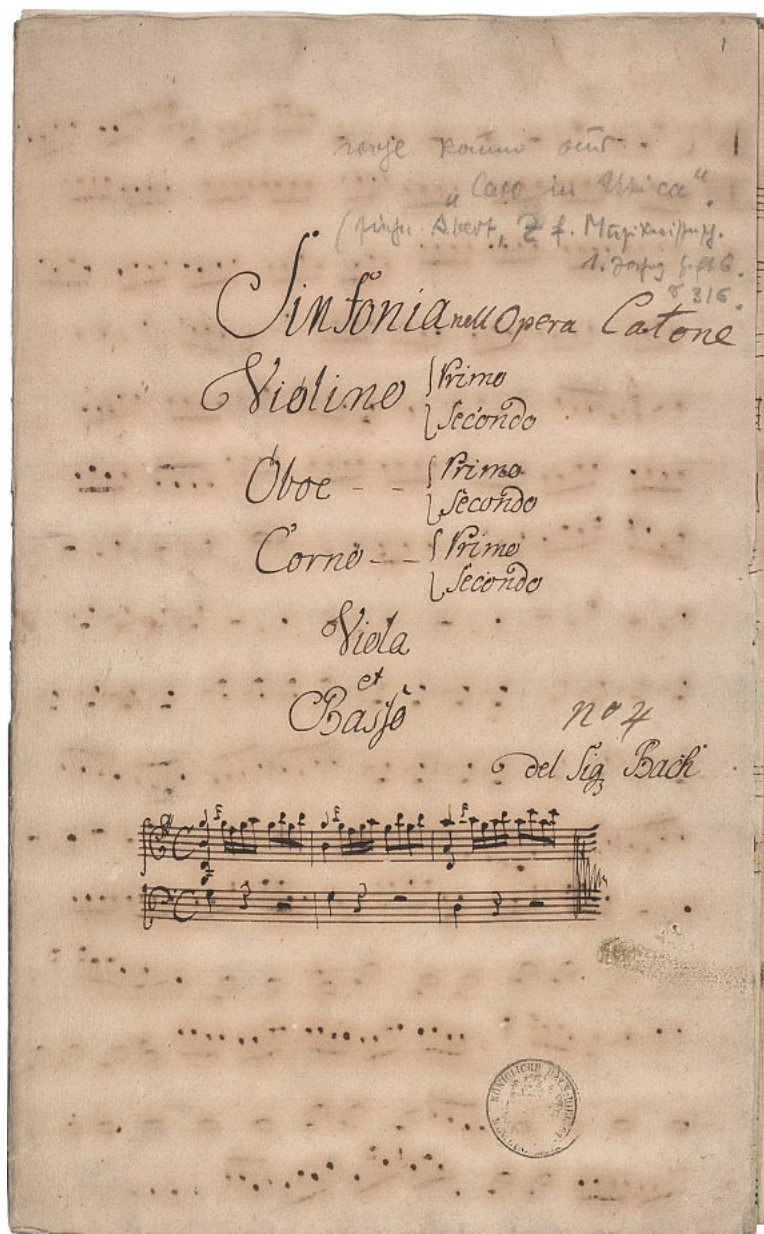 1
"Cato in Utica".
1. Heft 6.
316.
Sinfonia nell Opera Catone
Violino { Primo
{ Secondo
Oboe -- { Primo
{ Secondo
Corno -- { Primo
{ Secondo
Viola
et
Basso
no 4
del Sig Bach
KÖNIGLICHE